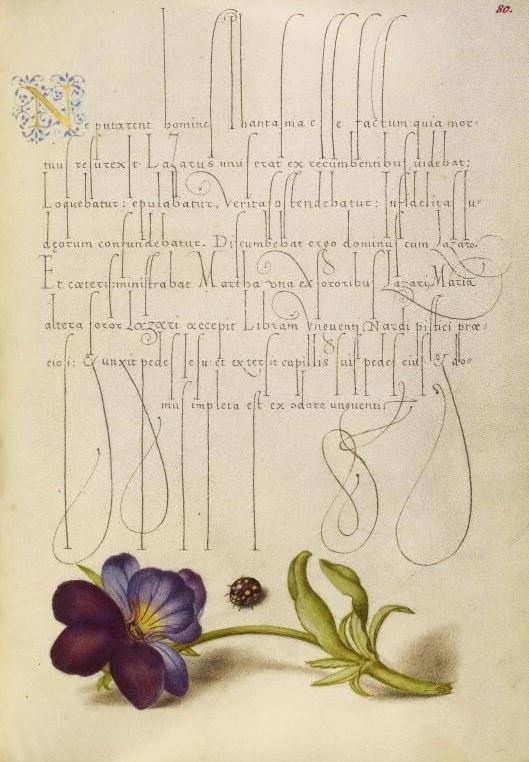 80.
Ne putarent homines phantasma esse factum quia mor-
tuus resurexit Lazarus unus erat ex recumbentibus uidebat:
Loquebatur: epulabatur, Veritas ostendebatur: infidelitas Iu-
dęorum confundebatur. Discumbebat ergo dominus cum Lazaro.
Et cæteris: ministrabat Martha vna ex sororibus Lazari, Maria
altera soror Lazari accepit Libram Vnguenti Nardi pistici præ-
ciosi: Et unxit pedes Iesu: et extersit capillis suis pedes eius et do-
mus impleta est ex odore unguenti,